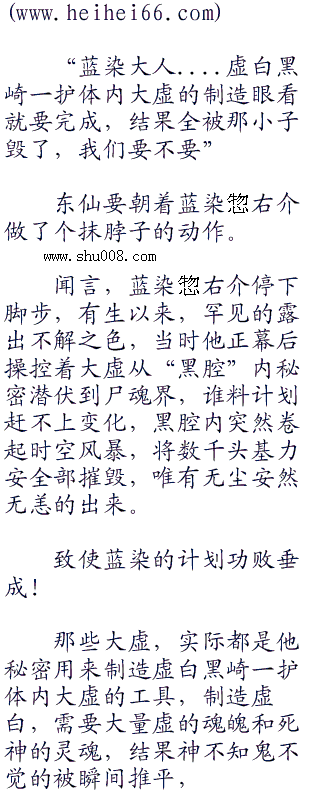 (www.heihei66.com)
“蓝染大人....虚白黑
崎一护体内大虚的制造眼看
就要完成，结果全被那小子
毁了，我们要不要”
东仙要朝着蓝染惣右介
做了个抹脖子的动作。
www.shu008.com
闻言，蓝染惣右介停下
脚步，有生以来，罕见的露
出不解之色，当时他正幕后
操控着大虚从“黑腔”内秘
密潜伏到尸魂界，谁料计划
赶不上变化，黑腔内突然卷
起时空风暴，将数千头基力
安全部摧毁，唯有无尘安然
无恙的出来。
致使蓝染的计划功败垂
成！
那些大虚，实际都是他
秘密用来制造虚白黑崎一护
体内大虚的工具，制造虚
白，需要大量虚的魂魄和死
神的灵魂，结果神不知鬼不
觉的被瞬间推平，